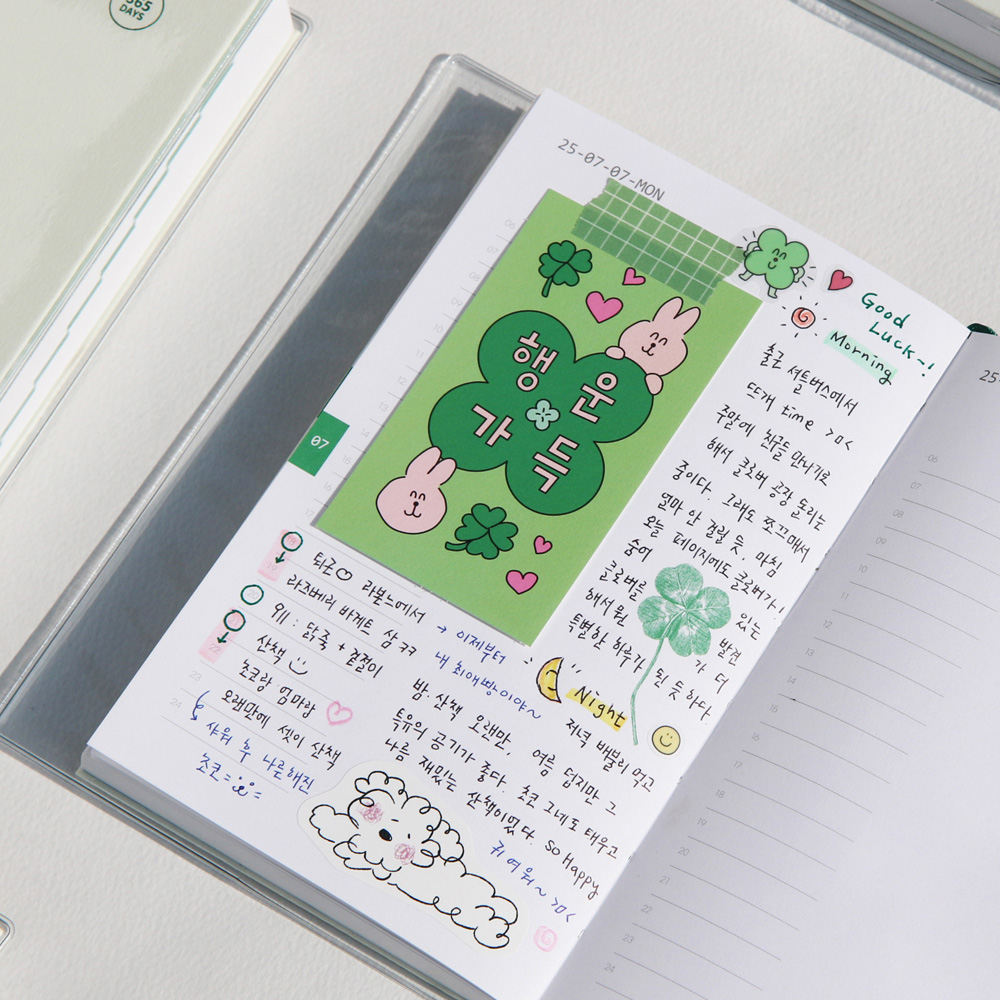 365
DAYS
25-07-07-MON
행운
가득
Good
Luck~!
Morning
출근 셔틀버스에서
뜨개 time >ㅁ<
주말에 친구들 만나기로
해서 클로버 공장 돌리는
중이다. 그래도 쪼끄매서
얼마 안 걸릴 듯. 마침
오늘 페이지에도 클로버가!
숨어 있는
클로버를 발견
해서 뭔가 더
특별한 하루가 된 듯 하다.
07
퇴근♡ 라본느에서
라즈베리 바게트 삼 ㅋㅋ
→ 이제부터
내 최애빵이야~
저녁: 닭죽 + 겉절이
산책
초코랑 엄마랑
오랜만에 셋이 산책
샤워 후 나른해진
초코=
Night
저녁 배불리 먹고
밤 산책 오랜만. 여름 덥지만 그
특유의 공기가 좋다. 초코 그네도 태우고
나름 재밌는 산책이었다. So Happy
귀여워~ >ㅁ<
06
07
08
09
10
11
12
13
14
15
16
17
22
23
24
25-
06
07
08
09
10
11
12
13
14
15
16
17
18
19
20
21
22
23
24